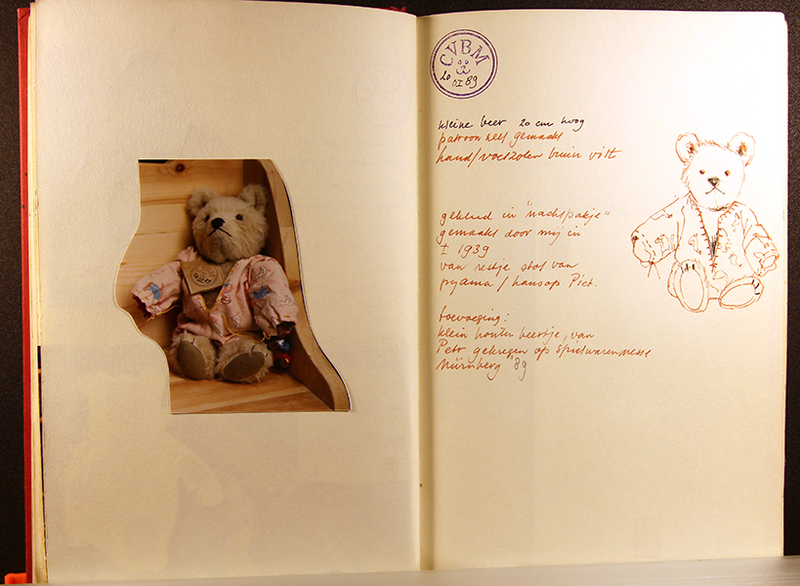 CVBM
20
VI 89
kleine beer 20 cm hoog
patroon zelf gemaakt
hand/voetzolen bruin vilt
gekleed in "nachtpakje"
gemaakt door mij in
I 1939
van restje stof van
pyama / hansop Piet.
toevoeging:
klein houten beertje, van
Petr gekregen op Spielwarenmesse
Nürnberg '89